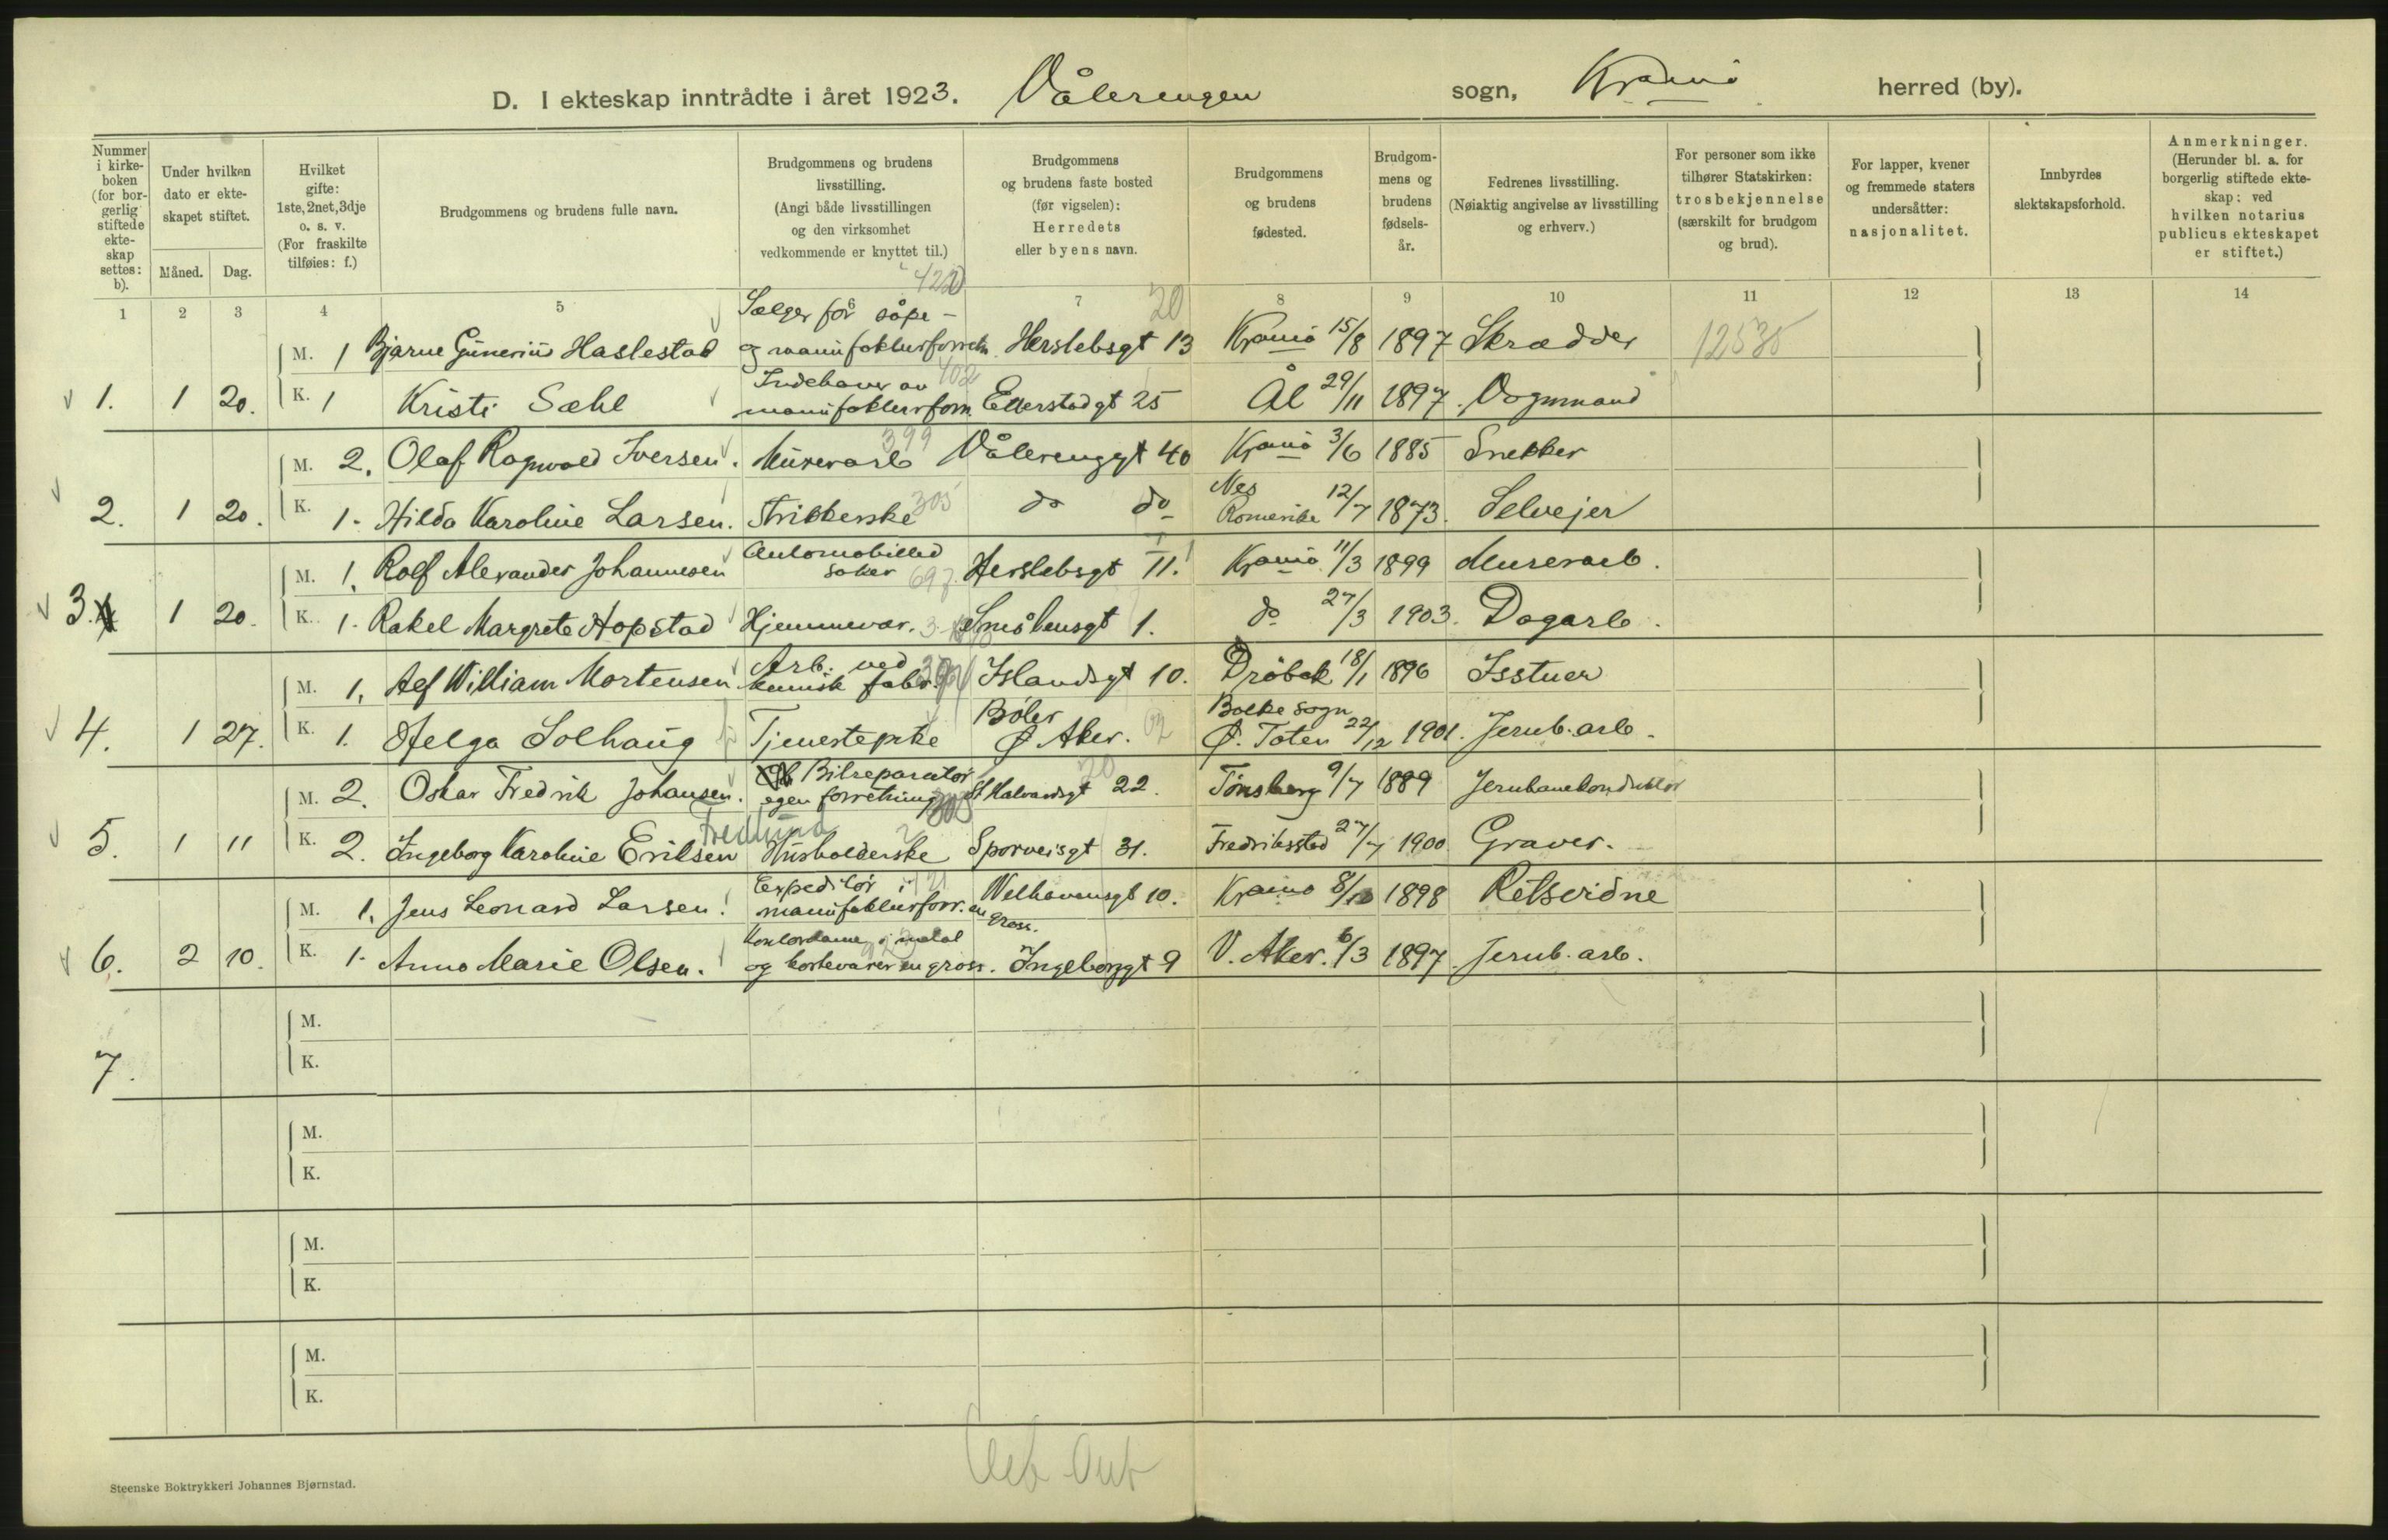 D. I ekteskap inntrådte i året 1923. Vålerengen sogn, Krania herred (by).
Nummer i kirke-boken (for bor-gerlig stiftede ekte-skap settes: b).
Under hvilken dato er ekte-skapet stiftet.
Måned. Dag.
Hvilket gifte: 1ste, 2net, 3dje o. s. v. (For fraskilte tilføies: f.)
Brudgommens og brudens fulle navn.
Brudgommens og brudens livsstilling. (Angi både livsstillingen og den virksomhet vedkommende er knyttet til.)
Brudgommens og brudens faste bosted (før vigselen): Herredets eller byens navn.
Brudgommens og brudens fødested.
Brudgom-mens og brudens fødsels-år.
Fedrenes livsstilling. (Nøiaktig angivelse av livsstilling og erhverv.)
For personer som ikke tilhører Statskirken: trosbekjennelse (særskilt for brudgom og brud).
For lapper, kvener og fremmede staters undersåtter: nasjonalitet.
Innbyrdes slektskapsforhold.
Anmerkninger. (Herunder bl. a. for borgerlig stiftede ekte-skap: ved hvilken notarius publicus ekteskapet er stiftet.)
1 2 3 4 5 6 7 8 9 10 11 12 13 14
M. 1 Bjarne Gunerius Haslestad Sælger for såpe- og manufakturforretn. Herslebsgt 13 Krania 15/8 1897 Skrædder
1. 1 20. K. 1 Kristi Sæhl Indehaver av manufakturforr. Etterstadgt 25 Ål 29/11 1897. Vognmand
M. 2. Olaf Ragnvald Iversen. Murerarb 399 Vålerenggt 40 Krania 3/6 1885 Snekker
2. 1 20. K. 1. Hilda Karoline Larsen. Strikkerske 305 do do Nes Romerike 12/7 1873. Selveier
M. 1. Rolf Alexander Johannesen Automobilled saker 697. Herslebsgt 11. Krania 11/3 1899 Murerarb.
3. 1 20. K. 1. Rakel Margrete Hopstad Hjemmevær. Smålensgt 1. do 27/3 1903. Dagarb.
M. 1. Alf William Mortensen Arb. ved kemisk fabr. Islandsgt 10. Drøbak 18/1 1896 Isstuer
4. 1 27. K. 1. Helga Solhaug Tjenestepike Bøler Ø. Aker. Balke sogn Ø. Toten 22/12 1901. Jernb. arb.
M. 2. Oskar Fredrik Johansen. Bilreparatør egen forretning St Halvardsgt 22. Tønsberg 9/7 1889 Jernbanekonduktør
5. 1 11 K. 2. Ingeborg Karoline Eriksen Fredlund Husholderske Sporveisgt 31. Fredriksstad 27/7 1900 Graver.
M. 1. Jens Leonard Larsen. Expeditør i manufakturforr. en gros. Welhavensgt 10. Krania 8/10 1898 Retsvidne
6. 2 10. K. 1. Anna Marie Olsen. Kontordame i metal og kortevarer en gross. Ingeborggt 9 V. Aker. 6/3 1897. Jernb. arb.
M.
7. K.
M.
K.
M.
K.
M.
K.
Steenske Boktrykkeri Johannes Bjørnstad.